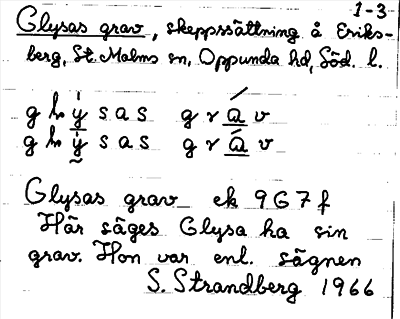 1-3
Glysas grav, skeppssättning å Eriks-
berg, St. Malms sn, Oppunda hd, Söd. l.
g l ý s a s g r á v
g l ý s a s g r á v
Glysas grav ek 9G7f
Här säges Glysa ha sin
grav. Hon var enl. sägnen
S. Strandberg 1966